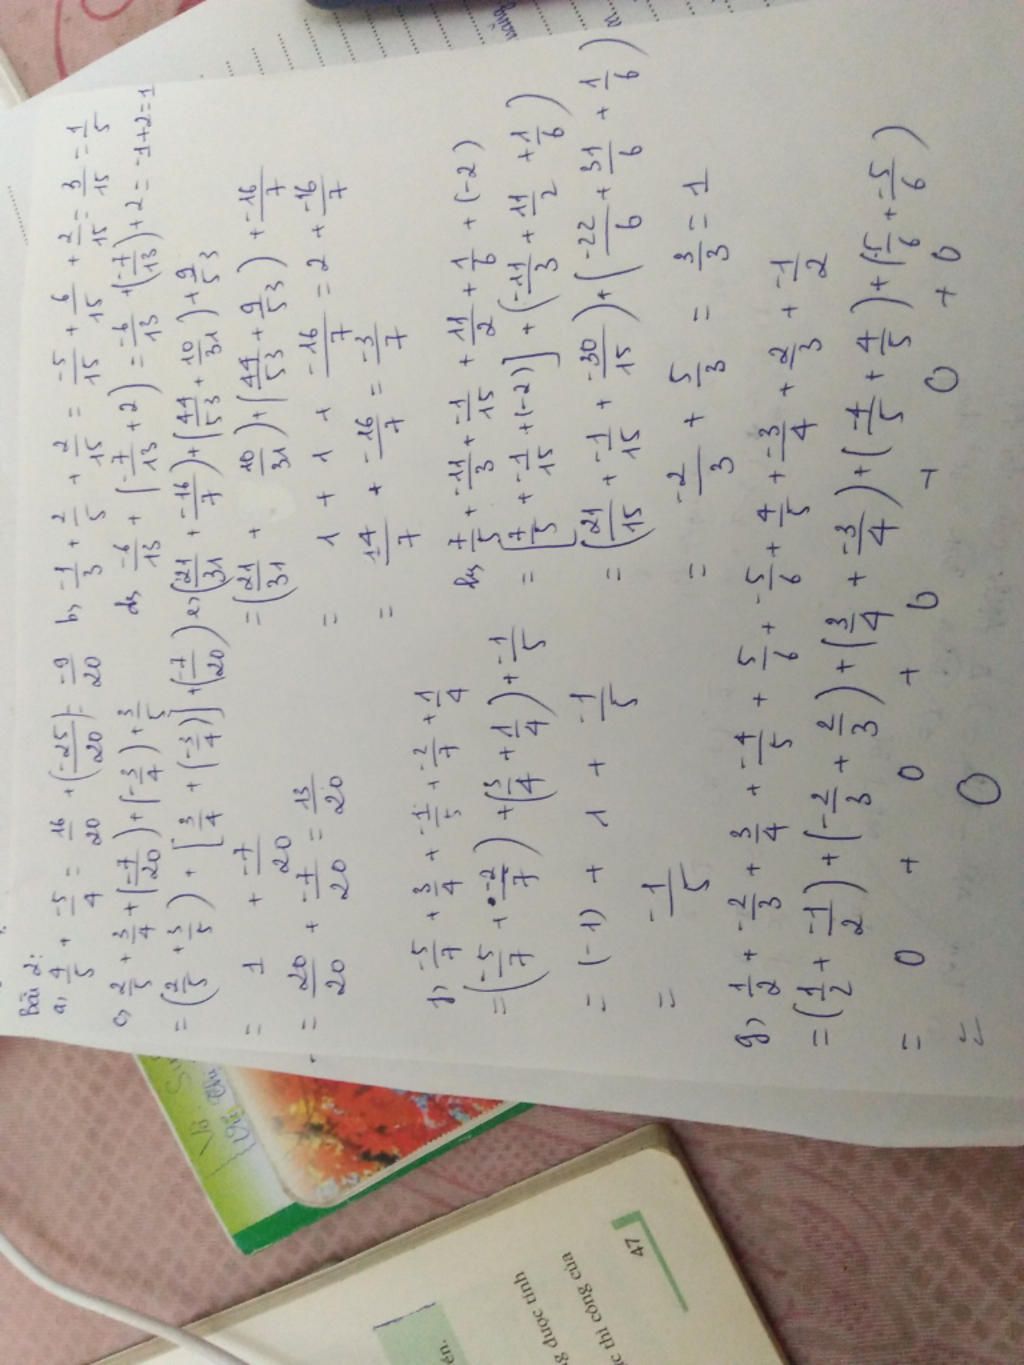 Bài 2:
a, 4/5 + -5/4 = 16/20 + (-25/20) = -9/20
b, -1/3 + 2/5 + 2/15 = -5/15 + 6/15 + 2/15 = 3/15 = 1/5
c, 2/5 + 3/4 + (-7/20) + (-3/4) + 3/5
= (2/5 + 3/5) + [3/4 + (-3/4)] + (-7/20)
= 1 + -7/20
= 20/20 + -7/20 = 13/20
d, -6/13 + (-7/13 + 2) = -6/13 + (-7/13) + 2 = -1+2=1
e, (21/31 + -16/7) + (44/53 + 10/31) + 9/53
= (21/31 + 10/31) + (44/53 + 9/53) + -16/7
= 1 + 1 + -16/7 = 2 + -16/7
= 14/7 + -16/7 = -3/7
f, -5/7 + 3/4 + -1/5 + -2/7 + 1/4
= (-5/7 + -2/7) + (3/4 + 1/4) + -1/5
= (-1) + 1 + -1/5
= -1/5
h, 7/5 + -11/3 + -1/15 + 11/2 + 1/6 + (-2)
= [7/5 + -1/15 + (-2)] + (-11/3 + 11/2 + 1/6)
= (21/15 + -1/15 + -30/15) + (-22/6 + 31/6 + 1/6)
= -2/3 + 5/3 = 3/3 = 1
g, 1/2 + -2/3 + 3/4 + -4/5 + 5/6 + -5/6 + 4/5 + -3/4 + 2/3 + -1/2
= (1/2 + -1/2) + (-2/3 + 2/3) + (3/4 + -3/4) + (-4/5 + 4/5) + (5/6 + -5/6)
= 0 + 0 + 0 + 0 + 0
= 0
Vở:
ên.
g được tính
c thi công của
47